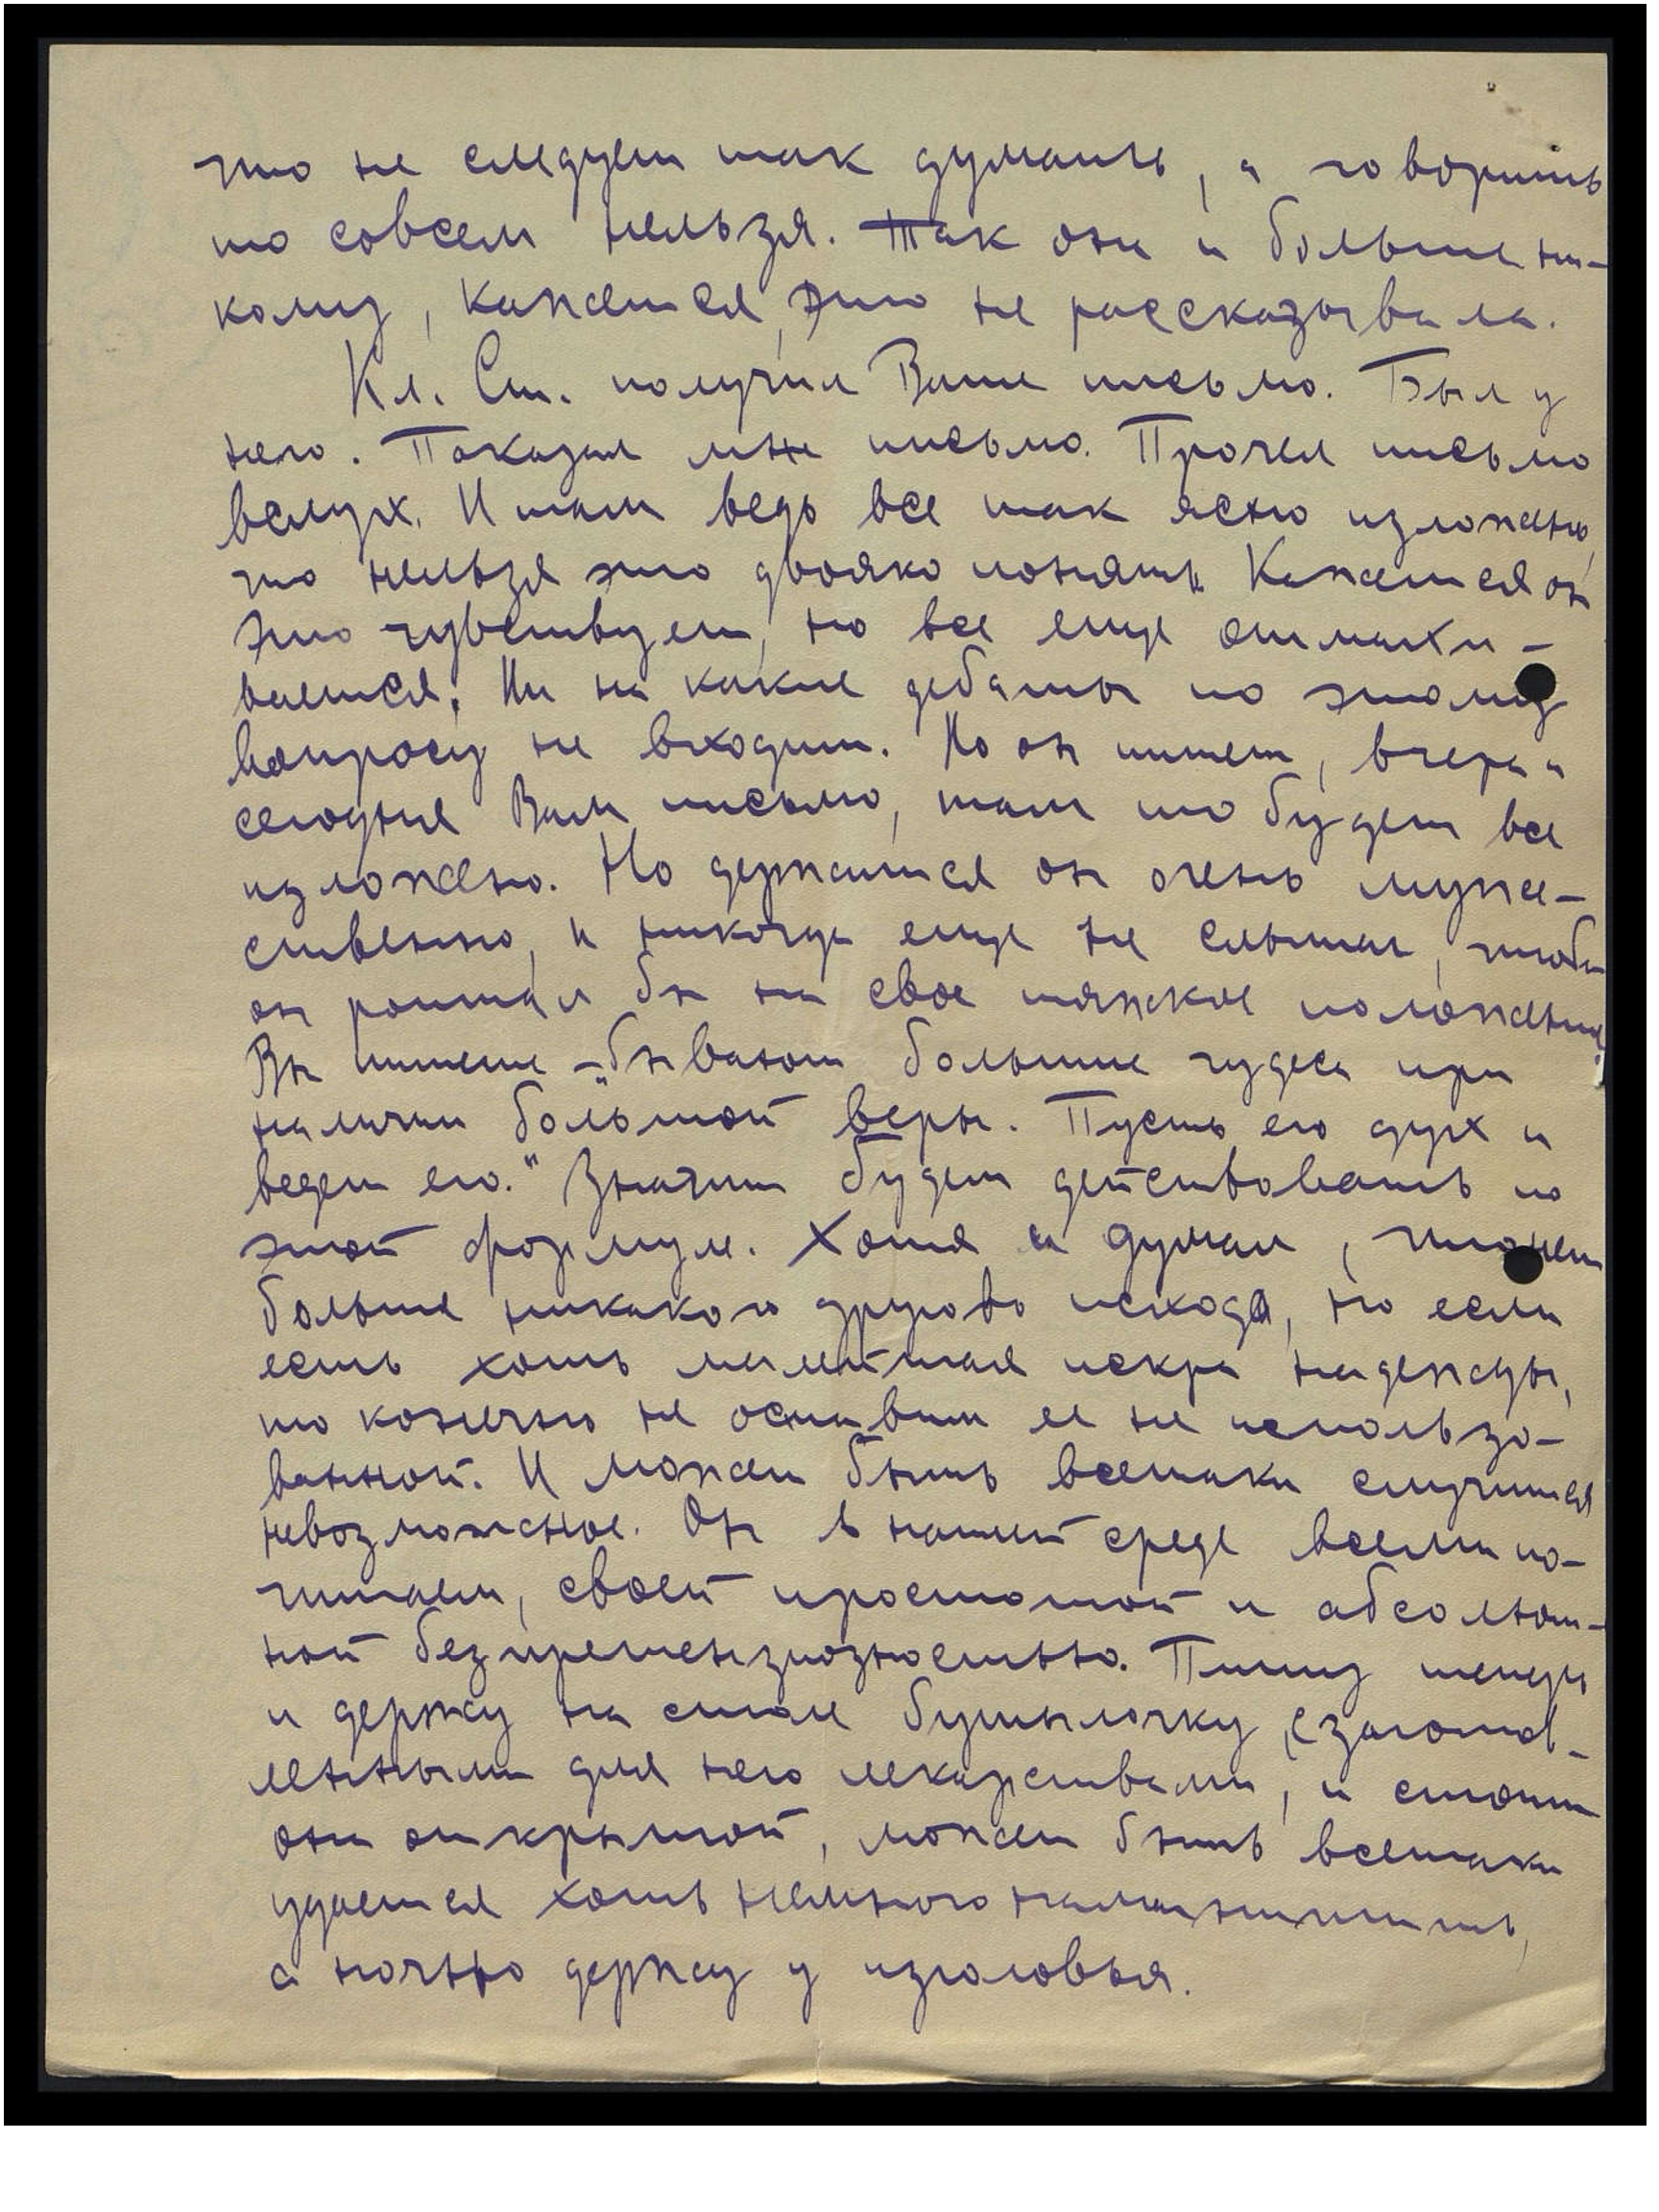 что не следует так думать, а говорить
то совсем нельзя. Так она и больше ни-
кому, кажется, это не рассказывала.
Кл. Ст. получил Ваше письмо. Был у
него. Показал мне письмо. Прочел письмо
вслух. И там ведь все так ясно изложено,
что нельзя это двояко понять. Кажется он
это чувствует, но все еще отмахи-
вается. Ни на какие дебаты по этому
вопросу не входит. Но он пишет, вчера и
сегодня Вам письмо, там то будет все
изложено. Но держится он очень муже-
ственно, и никогда еще не слышал, чтобы
он роптал бы на свое тяжкое положение.
Вы пишете – „бывают большие чудеса при
наличии большой веры. Пусть его дух и
ведет его." Значит будем действовать по
этой формуле. Хотя и думал, что нет
больше никакого другово исхода, но если
есть хоть малейшая искра надежды,
то конечно не оставим ее не использо-
ванной. И может быть всетаки случится
невозможное. Он в нашей среде всеми по-
читаем, своей простотой и абсолют-
ной безпретензиозностью. Пишу теперь
и держу на столе бутылочку с заготов-
ленными для него лекарствами, и стоит
она открытой, может быть всетаки
удается хоть немного намагнитить,
а ночью держу у изголовья.